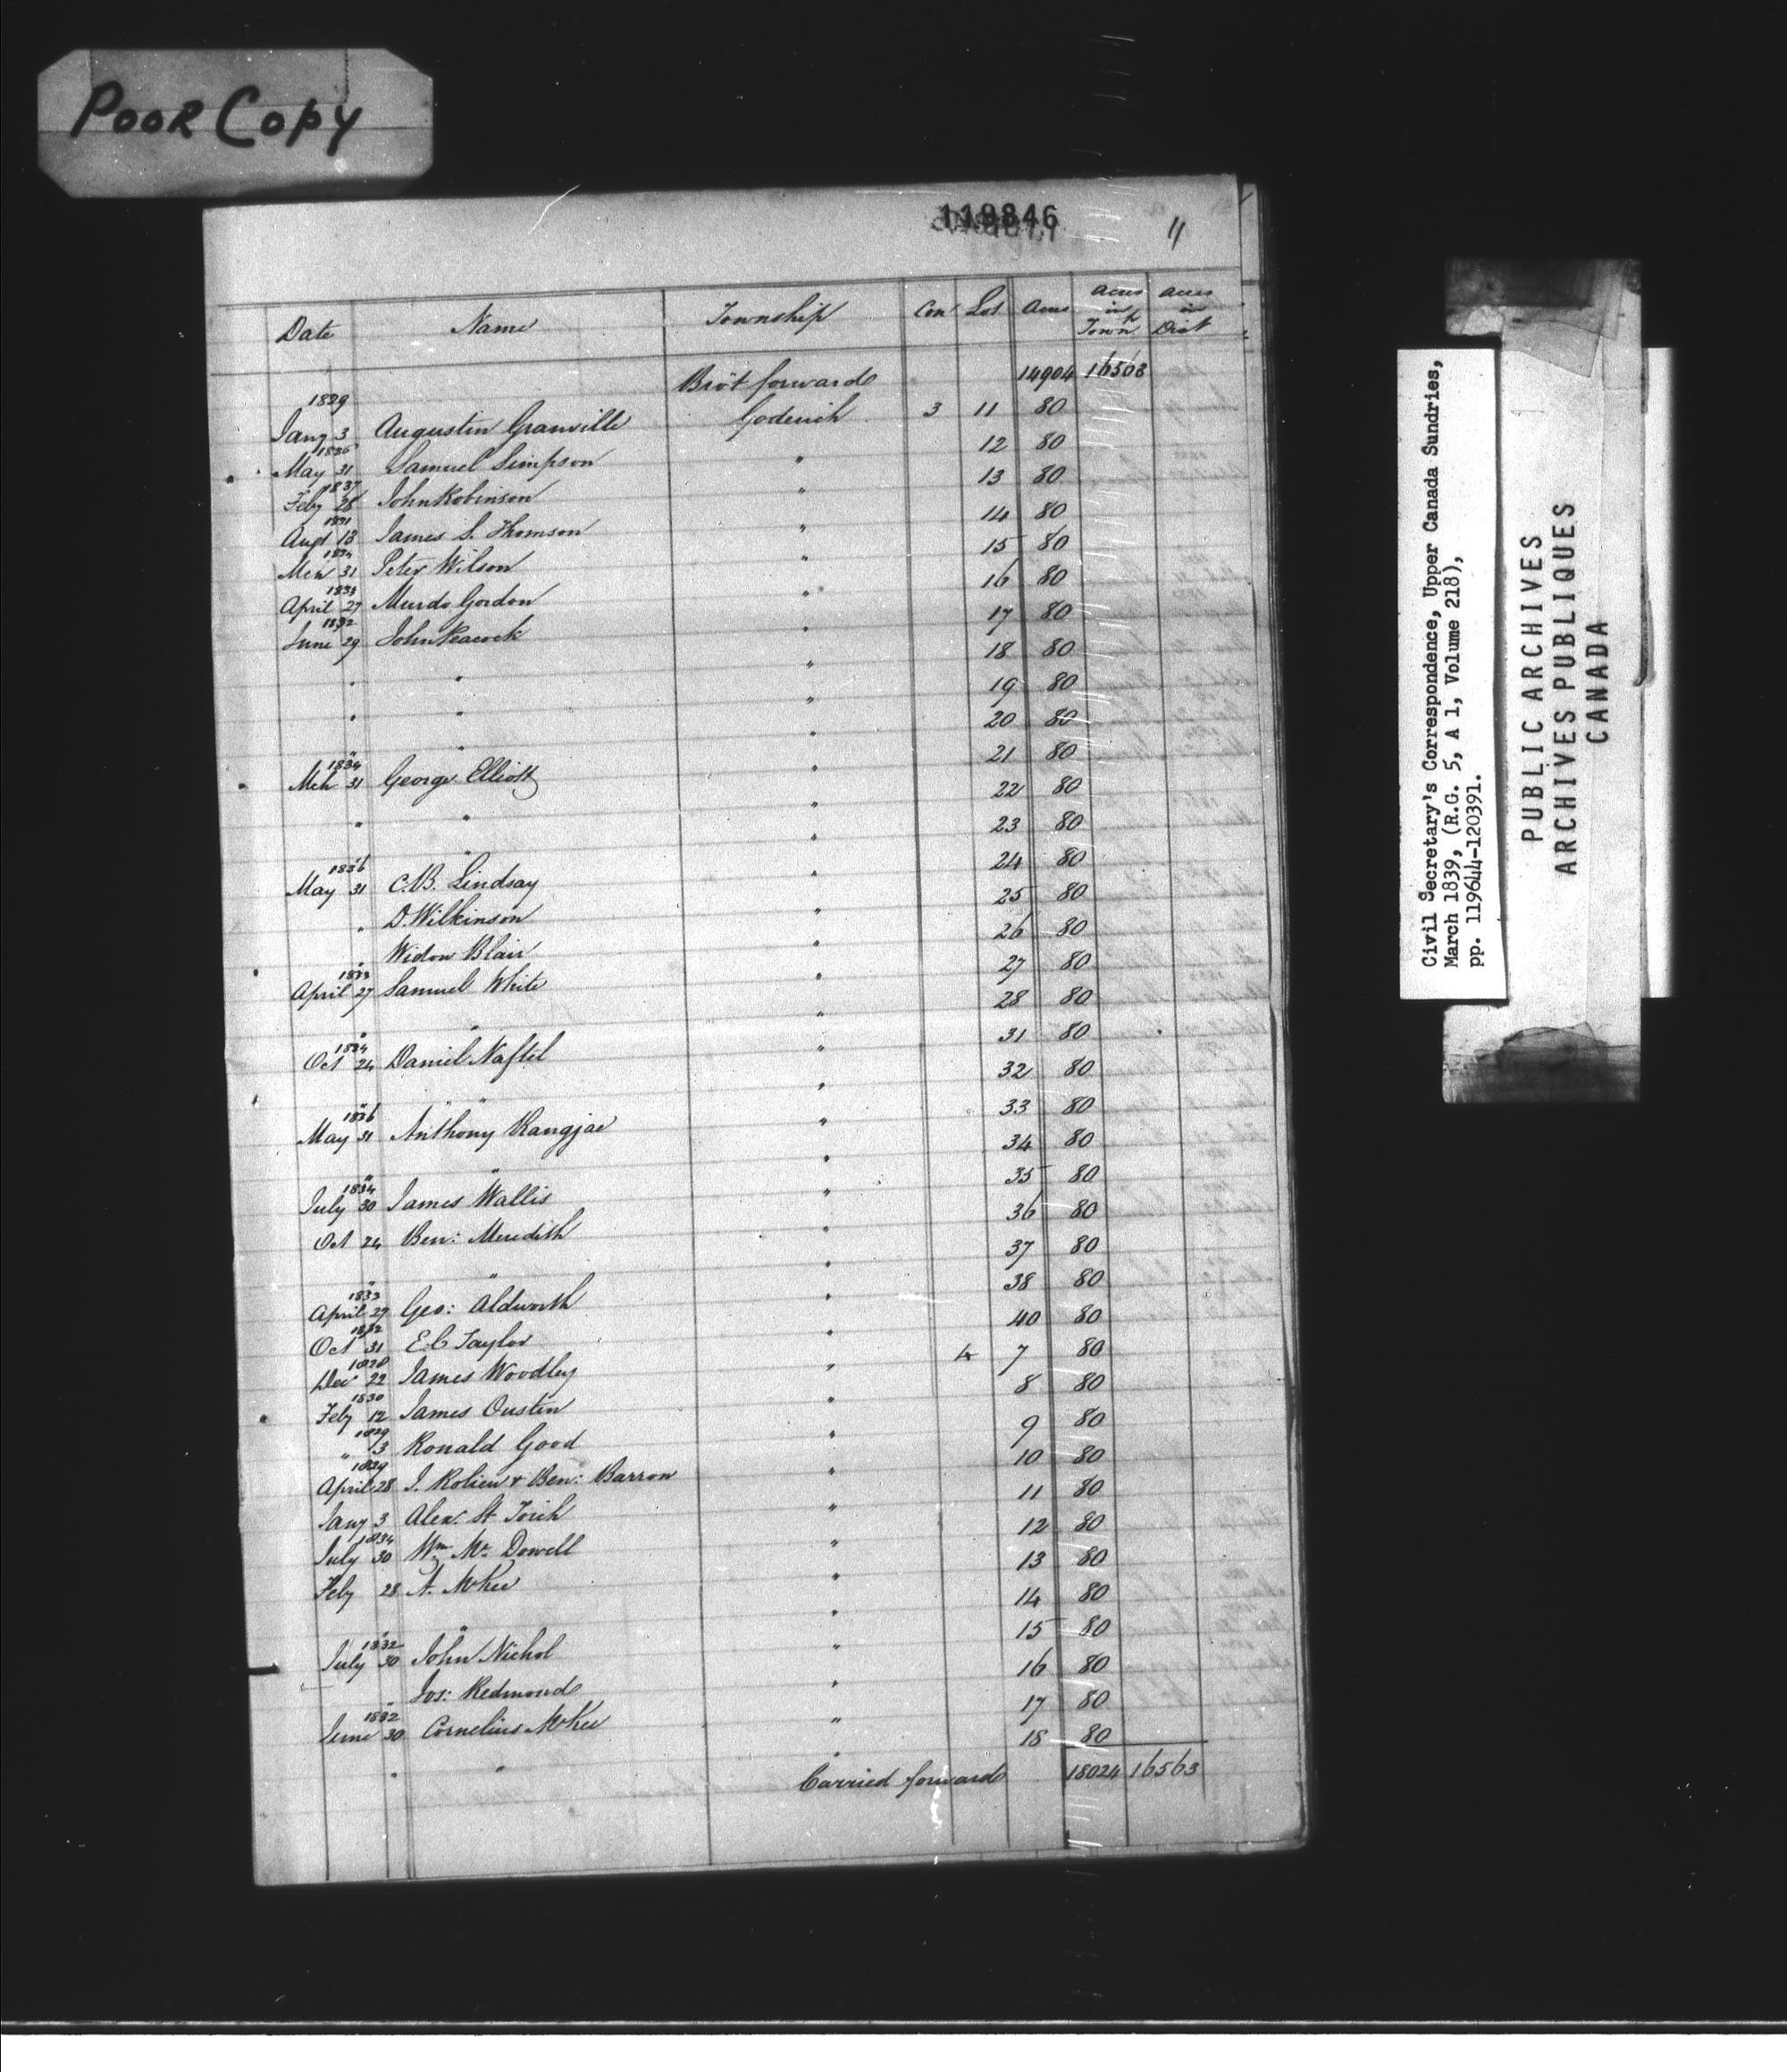 POOR COPY
119846
11
Date Name Township Con Lot Acres Acres in Townp Acres in Dist
Brot forward 14904 16563
1829
Jany 3 Augustin Granville Goderich 3 11 80
1836
May 31 Samuel Simpson " 12 80
1837
Feby 28 John Robinson " 13 80
1831
Augt 13 James S. Thomson " 14 80
1834
Mch 31 Peter Wilson " 15 80
1833
April 27 Murdo Gordon " 16 80
1832
June 29 John Peacock " 17 80
" " " 18 80
" " " 19 80
" " " 20 80
1834
Mch 31 George Elliott " 21 80
" " " 22 80
" " " 23 80
1836
May 31 C.B. Lindsay " 24 80
" D. Wilkinson " 25 80
" Widow Blair " 26 80
1833
April 27 Samuel White " 27 80
" " " 28 80
1834
Oct 24 Daniel Naftel " 31 80
" " " 32 80
1836
May 31 Anthony Rangjae " 33 80
" " " 34 80
1834
July 30 James Wallis " 35 80
Oct 24 Ben: Meredith " 36 80
" " " 37 80
1833
April 27 Geo: Aldworth " 38 80
1832
Oct 31 E.C Taylor " 40 80
1828
Dec 22 James Woodley " 4 7 80
1830
Feby 12 James Oustin " 8 80
1829
" 13 Ronald Good " 9 80
1829
April 28 J. & Ben: Barron " 10 80
Jany 3 Alexr. St " 11 80
1834
July 30 Wm Mc Dowell " 12 80
Feby 28 A. McKee " 13 80
" " " 14 80
1832
July 30 John Nichol " 15 80
" Jos: Redmond " 16 80
1832
June 30 Cornelius McKee " 17 80
" " " 18 80
Carried forward 18024 16563
Civil Secretary's Correspondence, Upper Canada Sundries,
March 1839, (R.G. 5, A 1, Volume 218),
pp. 119644-120391.
PUBLIC ARCHIVES
ARCHIVES PUBLIQUES
CANADA